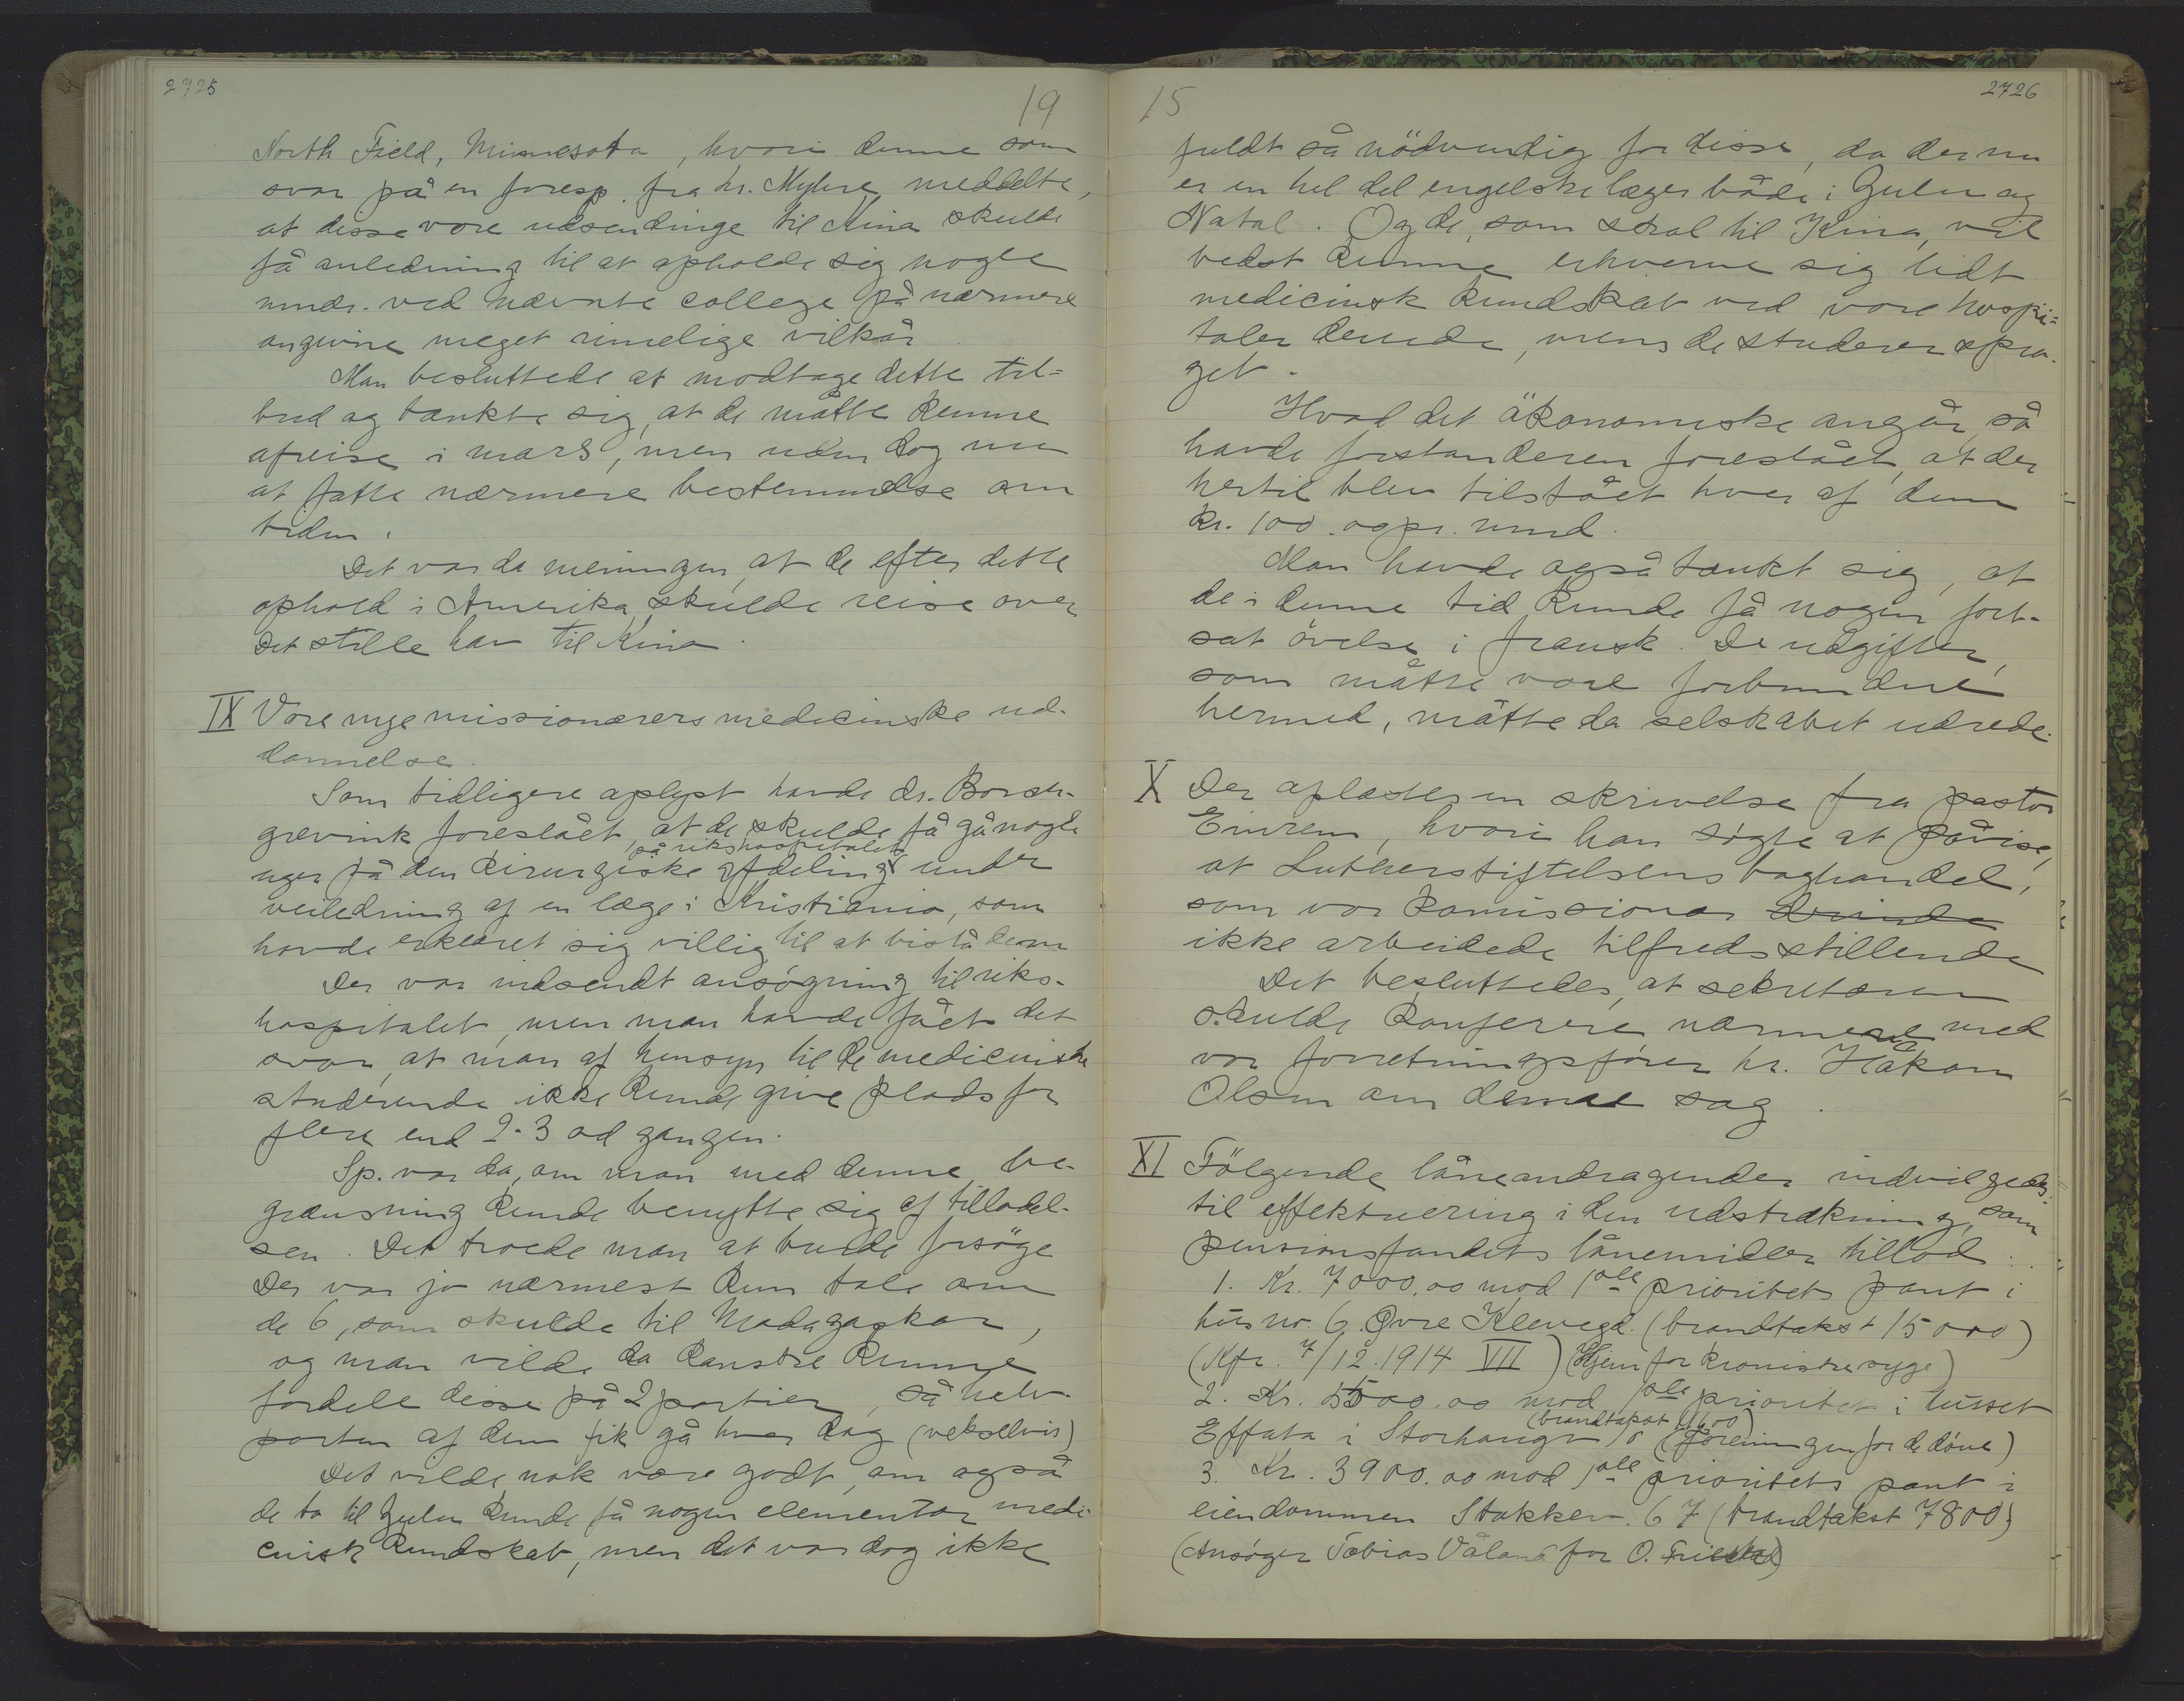 2725
19
North Field, Minnesota, hvori denne som
svar på en foresp. fra hr. Myhre meddelte,
at disse vore udsendinge til Kina skulde
få anledning til at opholde sig nogle
mndr. ved nævnte college på nærmere
angivne meget rimelige vilkår.
Man besluttede at modtage dette til=
bud og tænkte sig, at de måtte kunne
afreise i mars, men uden dog nu
at fatte nærmere bestemmelse om
tiden.
Det var da meningen, at de efter dette
ophold i Amerika skulde reise over
det stille hav til Kina.
IX Vore nye missionærers medicinske ud-
dannelse.
Som tidligere oplyst havde dr. Borch-
grevink foreslået, at de skulde få gå nogle
på rikshospitalet
uger på den kirurgiske afdeling under
veiledning af en læge i Kristiania, som
havde erklæret sig villig til at bistå dem
Der var indsendt ansøgning til riks-
hospitalet, men man havde fået det
svar, at man af hensyn til de medicinske
studerende ikke kunde give plads for
flere end 2-3 ad gangen.
Sp. var da, om man med denne be-
grænsning kunde benytte sig af tilladel-
sen. Det troede man at burde forsøge
Der var jo nærmest kun tale om
de 6, som skulde til Madagaskar,
og man vilde da kanske kunne
fordele disse på 2 partier, så halv-
parten af dem fik gå hver dag (vekselvis)
Det vilde nok være godt, om også
de to til Zulu kunde få nogen elementær medi-
cinsk kundskab, men det var dog ikke
15
2726
fuldt så nödvendig for disse, da der nu
er en hel del engelske læger både i Zulu og
Natal. Og de, som skal til Kina, vil
bedst kunne erhverve sig lidt
medicinsk kundskab ved vore hospi=
taler derude, mens de studerer spro-
get.
Hvad det økonomiske angår, så
havde forstanderen foreslået, at der
hertil blev tilstået hver af dem
kr. 100.oo pr. mnd.
Man havde også tænkt sig, at
de i denne tid kunde få nogen fort-
sat øvelse i fransk. De udgifter,
som måtte være forbundne
hermed, måtte da selskabet udrede.
X Der oplæstes en skrivelse fra pastor
Einrem, hvori han søgte at påvise,
at Lutherstiftelsens boghandel,
som vor kommissionær
ikke arbeidede tilfredsstillende
Det besluttedes, at sekretæren
skulde konferere nærmere med
vor forretningsfører hr. Håkon
Olsen om denne sag.
XI Følgende låneandragender indvilgedes
til effektuering i den udstrækning, som
pensionsfondets lånemidler tillod.
1. Kr. 7000.oo mod 1ste prioritets pant i
hus no. 6 Øvre Klevegd. (brandtakst 15000)
(Kfr. 7/12.1914 VII) (Hjem for kroniske syge)
2. Kr. 5500.oo mod 1ste prioritet i huset
(brandtakst
Effata i Storhaugv. (foreningen for de døve)
3. Kr. 3900.oo mod 1ste prioritets pant i
eiendommen Stokkav. 67 (brandtakst 7800)
(Ansøger Tobias Våland for O.